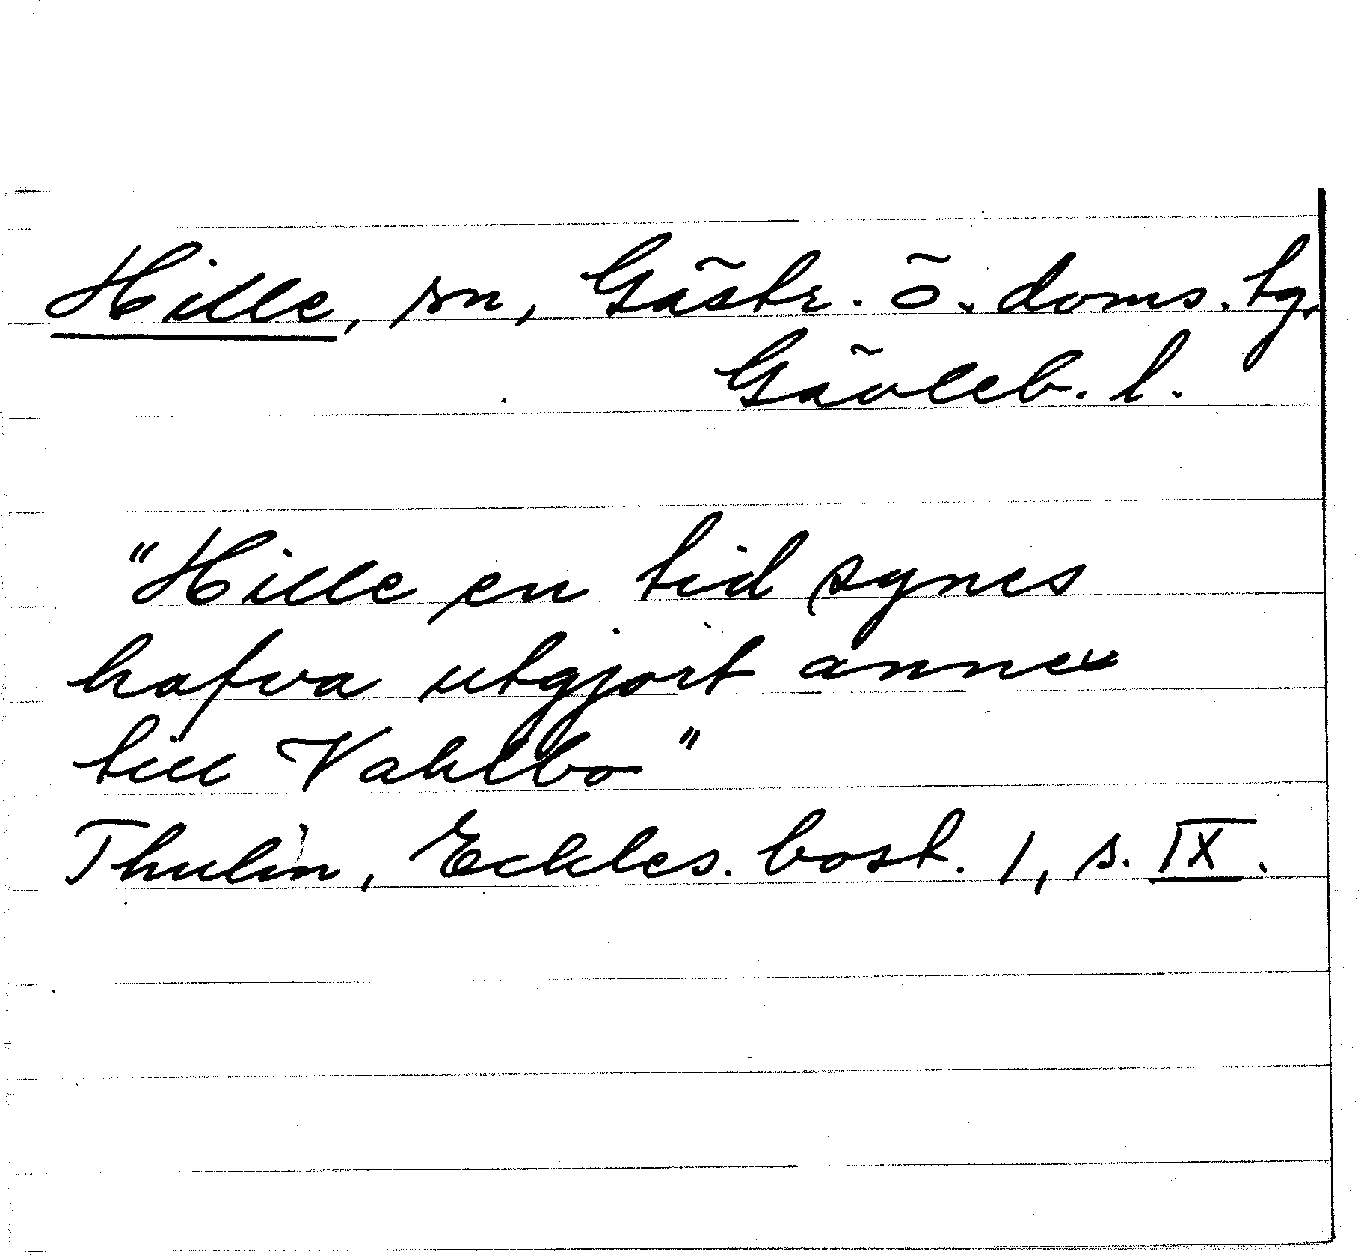 Hille, sn, Gästr. ö. doms. tg.
Gävleb. l.
"Hille en tid synes
hafva utgjort annex
till Vahlbo"
Thulin, Eckles. bost. 1, s. IX.